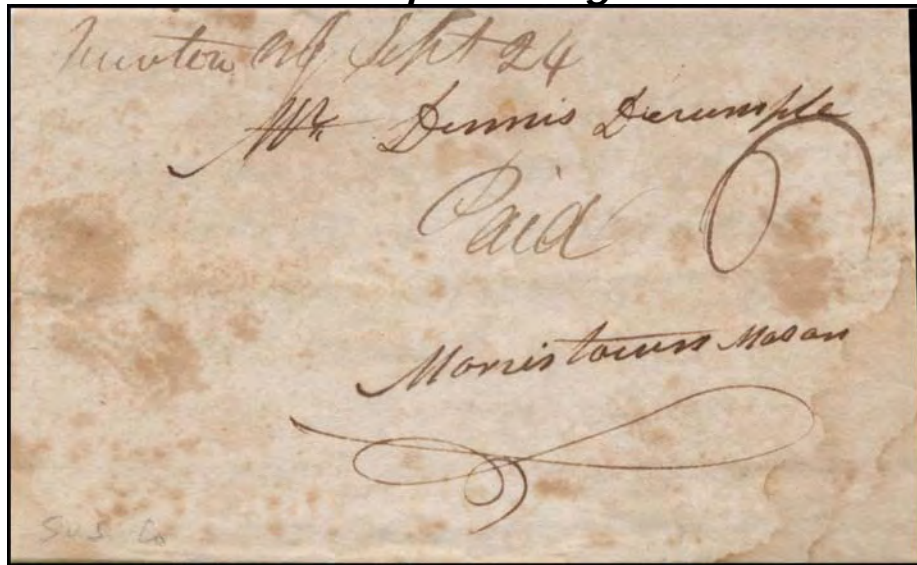 Newton NJ Sept 24
Mr. Dennis Derumple
Paid 6
Morristown Mason
Sus Co